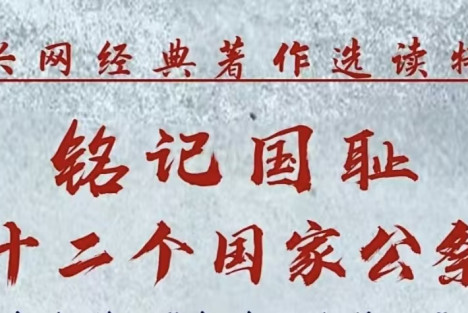 网经典著作选读特
铭记国耻
十二个国家公祭